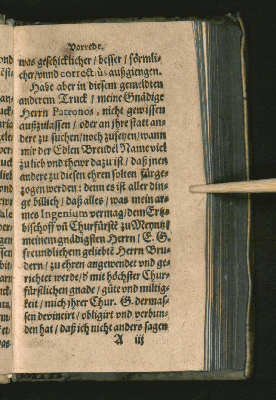 Vorrede.
was geschicklicher / besser / förmli-
cher / vnnd correct: ūs außgiengen.
Habe aber in diesem gemeldten
anderem Truck / meine Gnädige
Herrn Patronos, nicht gewissen
außzulassen / oder an jhre statt an-
dere zu suchen / noch zusetzen / wann
mir der Edlen Brendel Name viel
zu lieb vnd thewr dazu ist / daß jnen
andere zu diesen ehren solten fürge-
zogen werden: denn es ist aller din-
ge billich / daß alles / was mein ar-
mes Ingenium vermag / dem Ertz-
bischoff vñ Churfürstẽ zu Meyntz /
meinem gnädigsten Herrn / E. G.
freundlichem geliebtẽ Herrn Bru-
dern / zu ehren angewendet vnd ge-
richtet werde / d' mit höchster Chur-
fürstlichen gnade / güte vnd miltig-
keit / mich jhrer Chur. G. dermas-
sen devincirt / obligirt vnd verbun-
den hat / daß ich nicht anders sagen
A iij